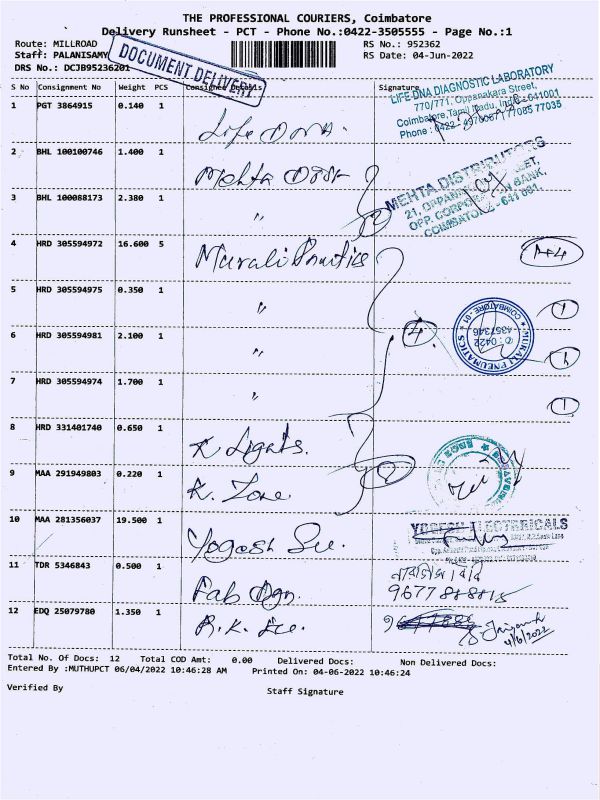 THE PROFESSIONAL COURIERS, Coimbatore
Delivery Runsheet - PCT - Phone No.:0422-3505555 - Page No.:1
Route: MILLROAD RS No.: 952362
Staff: PALANISAMY RS Date: 04-Jun-2022
DRS No.: DCJB95236201
DOCUMENT DELIVERY
S No Consignment No Weight PCS Consignee Details Signature
1 PGT 3864915 0.140 1 Life DNA.
LIFE DNA DIAGNOSTIC LABORATORY
770/771, Oppanakara Street,
Coimbatore, Tamil Nadu, India - 641001
Phone : 0422 77085 77035
2 BHL 100100746 1.400 1 Mehta Dist
MEHTA DISTRIBUTORS
21, OPPAN STREET,
OPP. CORPORATION BANK,
COIMBATORE - 641 001.
3 BHL 100088173 2.380 1 "
2
4 HRD 305594972 16.600 5 Murali
1+4
5 HRD 305594975 0.350 1 "
1
MURALI PNEUMATICS
COIMBATORE - 01
: 0422
4357346
4
6 HRD 305594981 2.100 1 "
7 HRD 305594974 1.700 1 "
1
8 HRD 331401740 0.650 1 K Lights.
9 MAA 291949803 0.220 1 K. Zone
10 MAA 281356037 19.500 1 Yogesh
YOGESH ELECTRICALS
11 TDR 5346843 0.500 1 Fab Dgn.
9677888815
12 EDQ 25079780 1.350 1 R.K.
4/6/2022
Total No. Of Docs: 12 Total COD Amt: 0.00 Delivered Docs: Non Delivered Docs:
Entered By :MUTHUPCT 06/04/2022 10:46:28 AM Printed On: 04-06-2022 10:46:24
Verified By Staff Signature